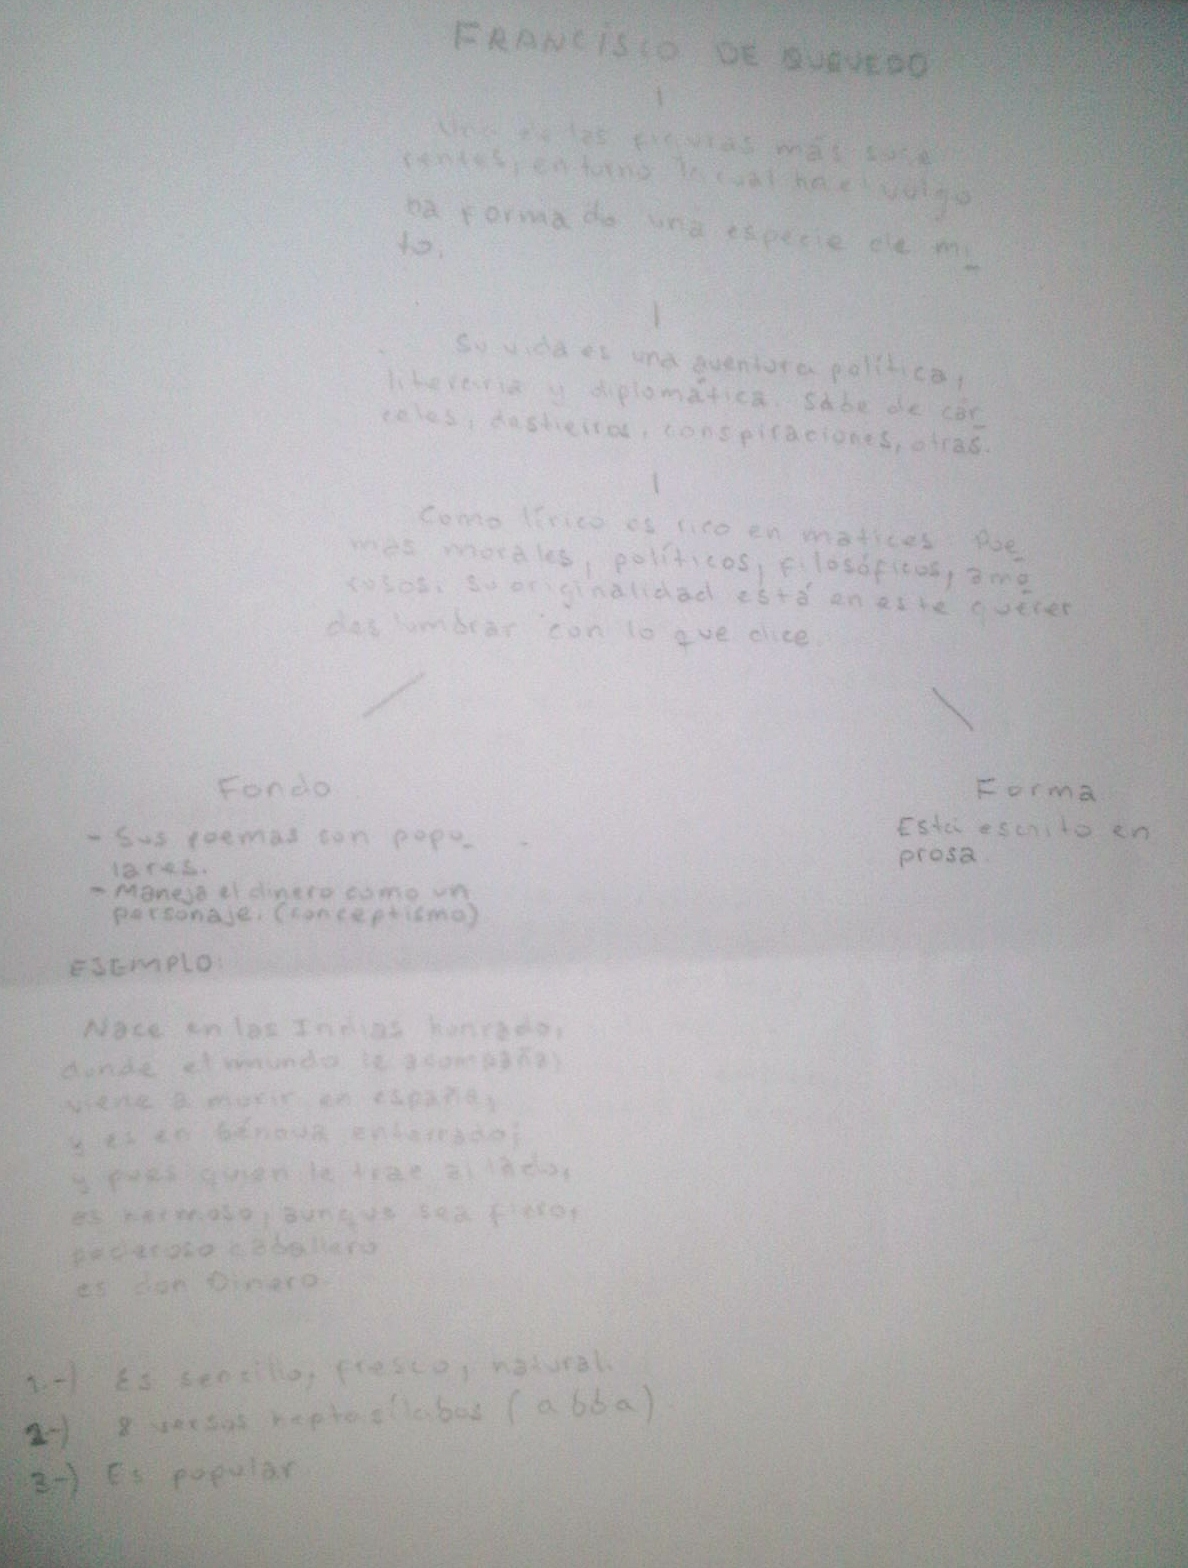 FRANCISCO DE QUEVEDO
Una de las figuras más suge
rentes, en torno la cual el vulgo
ha formado una especie de mi_
to.
Su vida es una aventura política,
literaria y diplomática. Sabe de cár_
celes, destierros, conspiraciones, otras.
Como lírico es rico en matices. Poe_
mas morales, políticos, filosóficos, amo_
rosos. Su originalidad está en este querer
deslumbrar con lo que dice.
Fondo
- Sus poemas son popu_
lares.
- Maneja el dinero como un
personaje. (conceptismo)
Forma
Está escrito en
prosa.
EJEMPLO:
Nace en las Indias honrado,
donde el mundo le acompaña;
viene a morir en españa,
y es en Génova enterrado;
y pues quien le trae al lado,
es hermoso, aunque sea fiero,
poderoso caballero
es don Dinero.
1.-) Es sencillo, fresco, natural.
2-) 8 versos heptosílabos (abba).
3-) Es popular